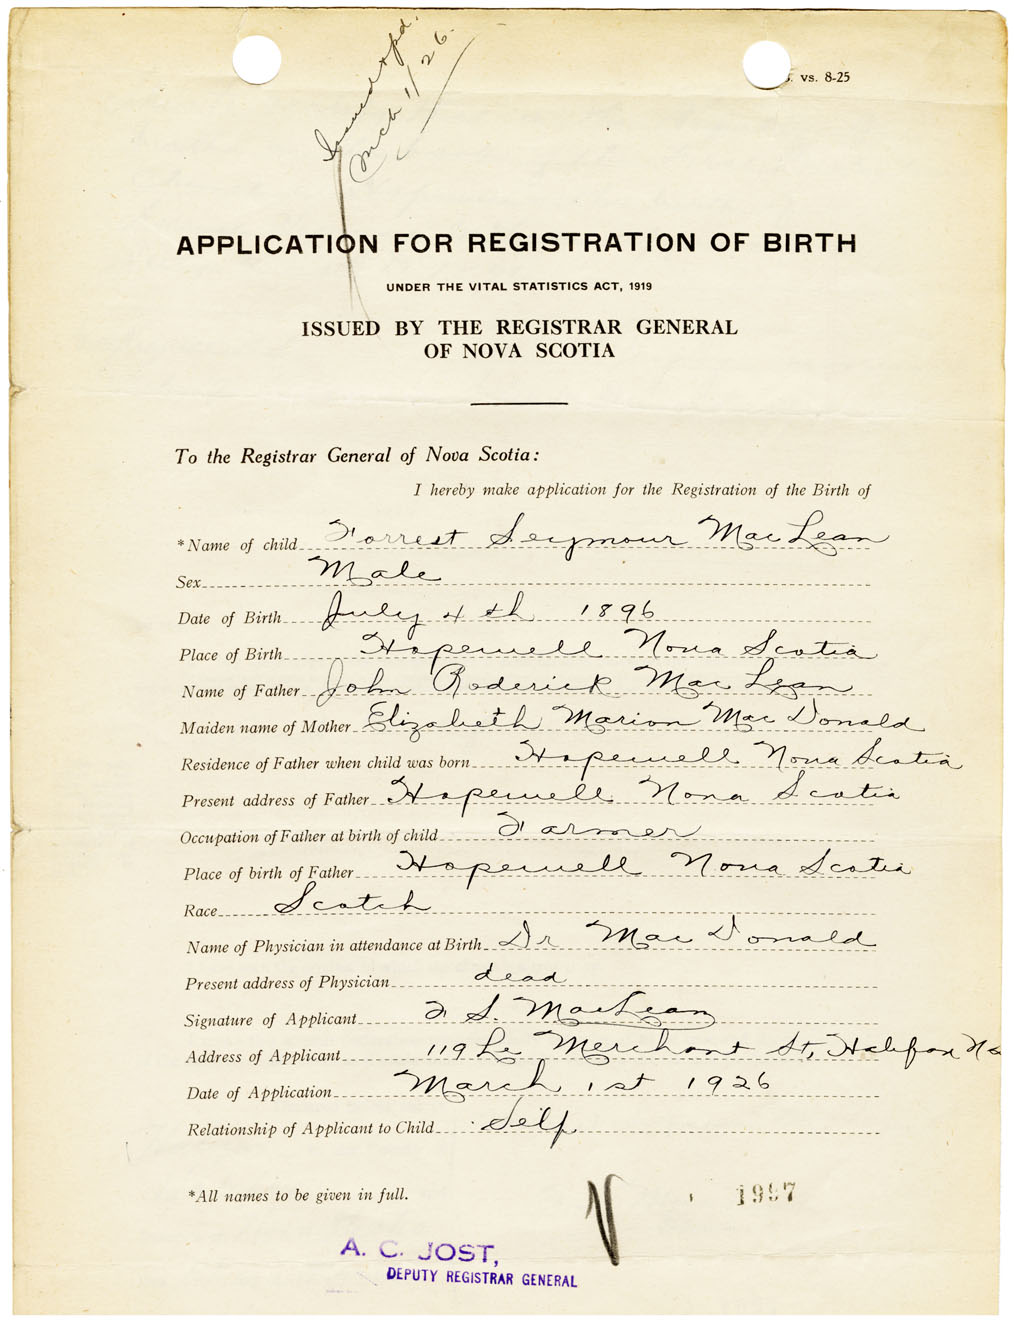 Issued & pd.
Mch 1/26.
vs. 8-25
APPLICATION FOR REGISTRATION OF BIRTH
UNDER THE VITAL STATISTICS ACT, 1919
ISSUED BY THE REGISTRAR GENERAL
OF NOVA SCOTIA
To the Registrar General of Nova Scotia:
I hereby make application for the Registration of the Birth of
*Name of child Forrest Seymour MacLean
Sex Male
Date of Birth July 4th 1896
Place of Birth Hopewell Nova Scotia
Name of Father John Roderick MacLean
Maiden name of Mother Elizabeth Marion MacDonald
Residence of Father when child was born Hopewell Nova Scotia
Present address of Father Hopewell Nova Scotia
Occupation of Father at birth of child Farmer
Place of birth of Father Hopewell Nova Scotia
Race Scotch
Name of Physician in attendance at Birth Dr MacDonald
Present address of Physician dead
Signature of Applicant F S. MacLean
Address of Applicant 119 Le Merchant St, Halifax
Date of Application March 1st 1926
Relationship of Applicant to Child Self
*All names to be given in full.
1997
A. C. JOST,
DEPUTY REGISTRAR GENERAL